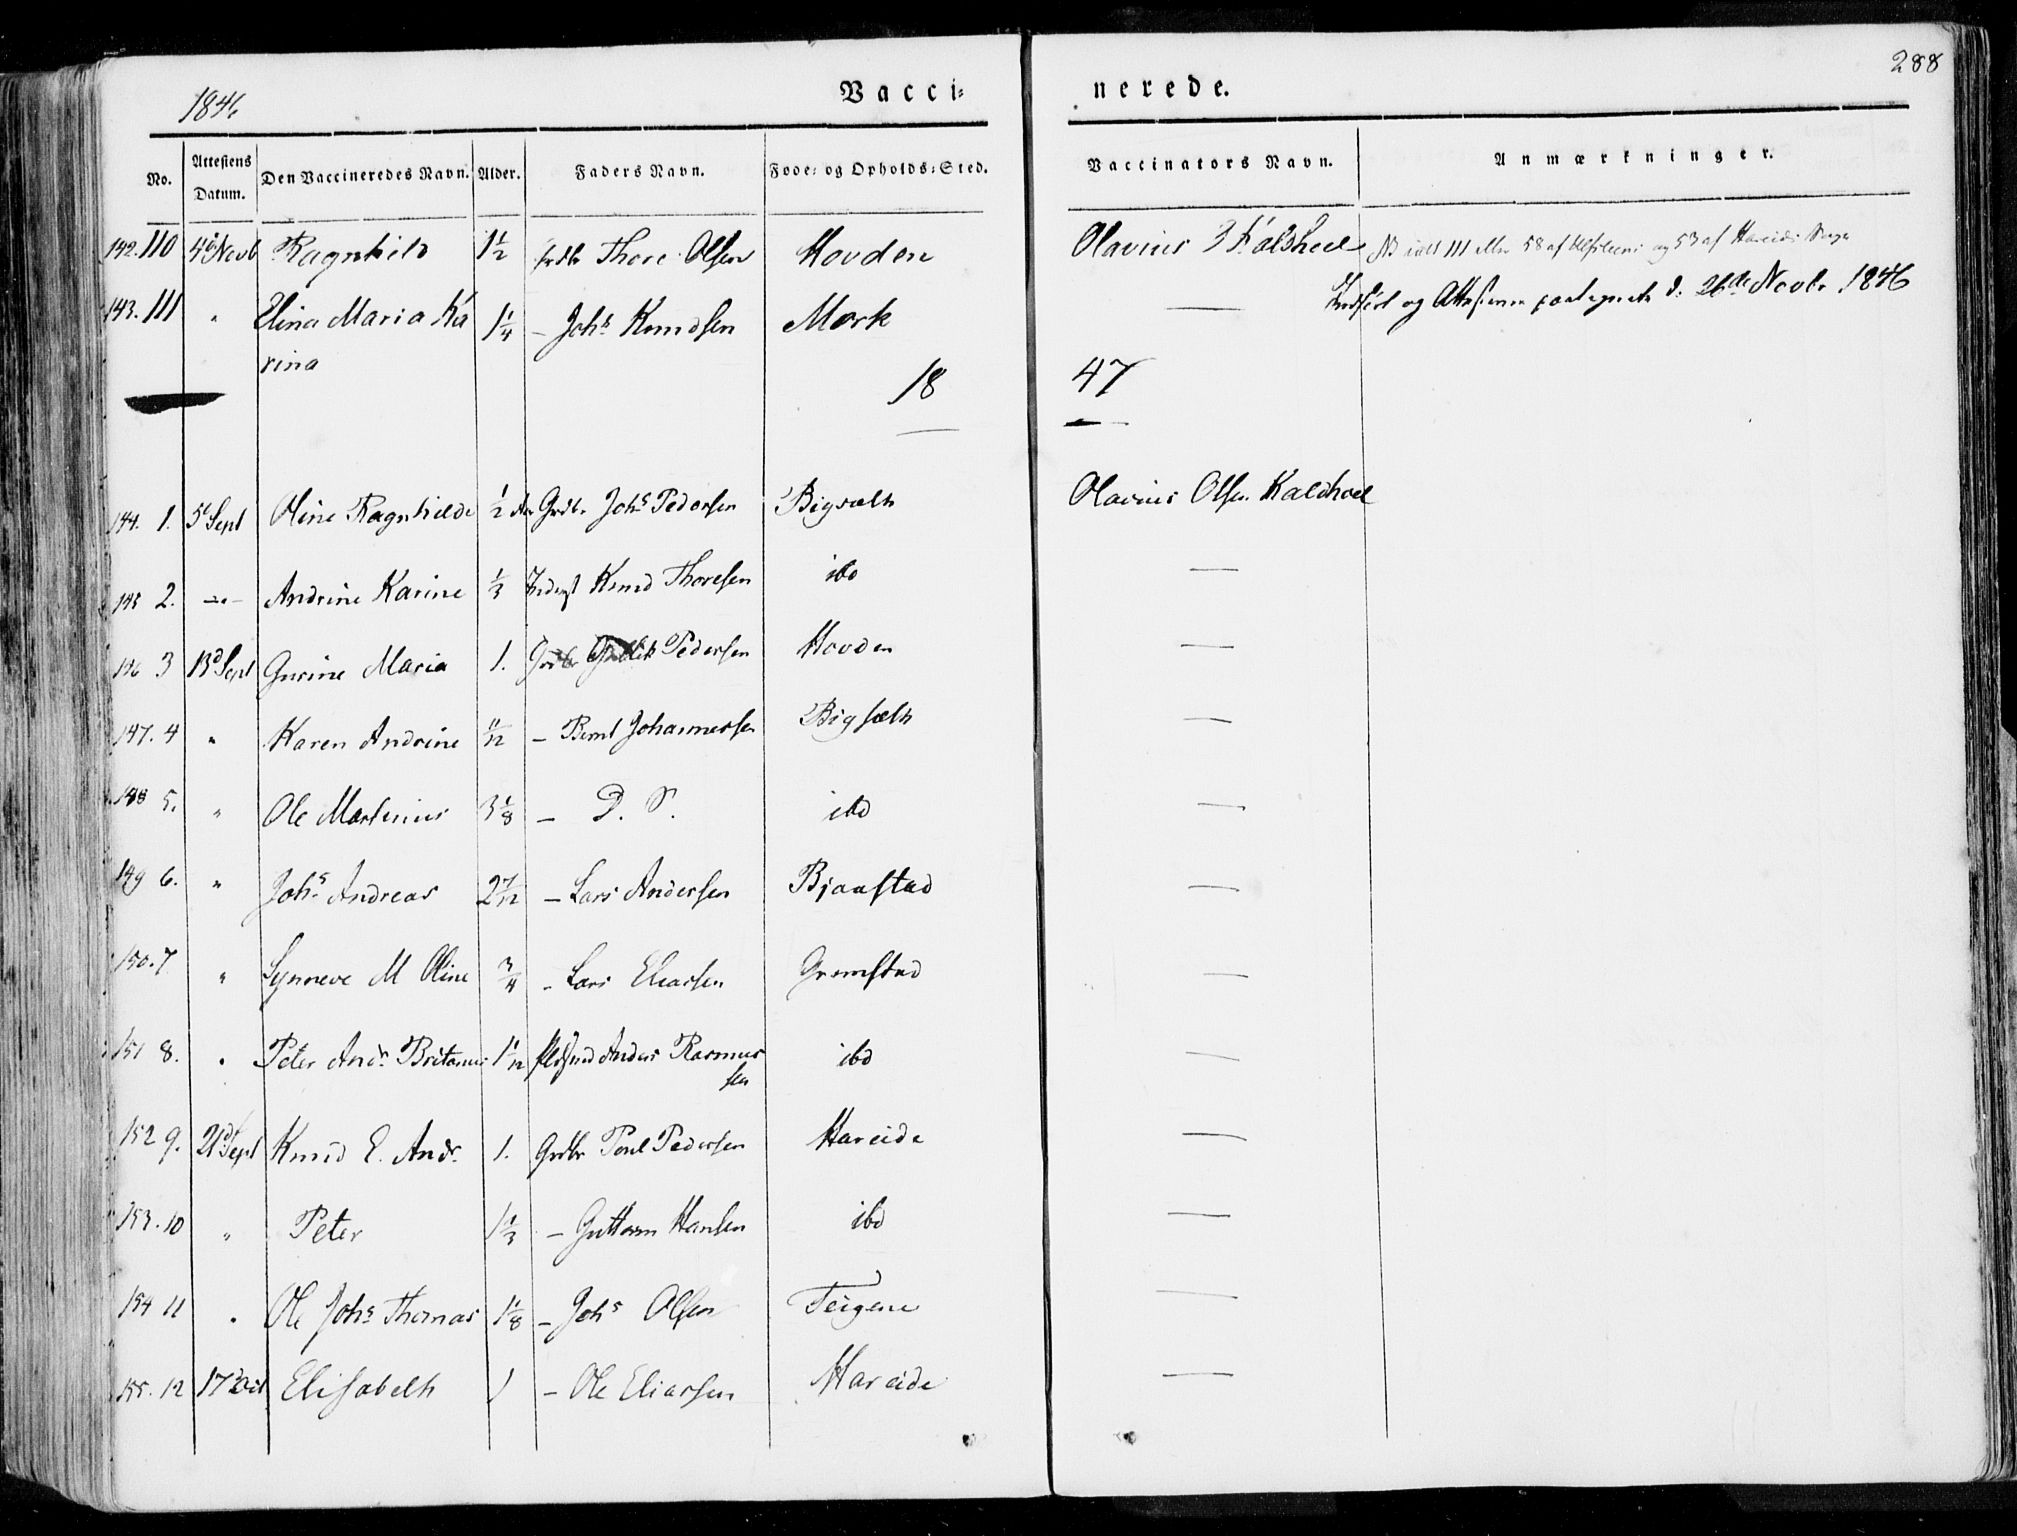 288
1846
Vacci= nerede.
No. Attestens Datum. Den Vaccineredes Navn. Alder. Faders Navn. Føde= og Opholds=Sted. Vaccinators Navn. Anmærkninger.
142. 110 4d Novb Ragnhild 1 1/2 Grdbr Thore Olsen Hovden Olavius
143. 111 " Elina Maria Ka 1 1/4 – Johs Knudsen Mork —
rina
og Attesterne d. 26de Novbr 1846
18 47
144. 1. 5t Sept Oline Ragnhilde 1/2 Grdbr Johs Pedersen Bigsæth Olavius Olsen Kaldhoel
145 2. –"– Andrine Karine 1/3 Inderst Knud Thoresen ibd —
146 3 13d Sept Gurine Maria 1. Grdbr Pedersen Hovden —
147. 4 " Karen Andrine 11/12 – Bernt Johannessen Bigsæth —
148 5. " Ole Martinus 3 1/8 – D. S. ibd —
149 6. " Johs Andreas 2 7/12 – Lars Andersen Bjaastad —
150. 7 " Synneve M Oline 3/4 – Lars Eliassen Grimstad —
151 8. " Peter Andr. Britanus 1 1/12 Anders Rasmus ibd —
sen
152 9. 21d Sept Knud E. Andr. 1. Grdbr Poul Pedersen Hareide —
153. 10 " Peter 1 1/3 – Guttorm Hansen ibd —
154 11 " Ole Johs Thomas 1 1/8 – Johs Olsen Teigene —
155. 12 17d Elisabeth 1 – Ole Eliassen Hareide —